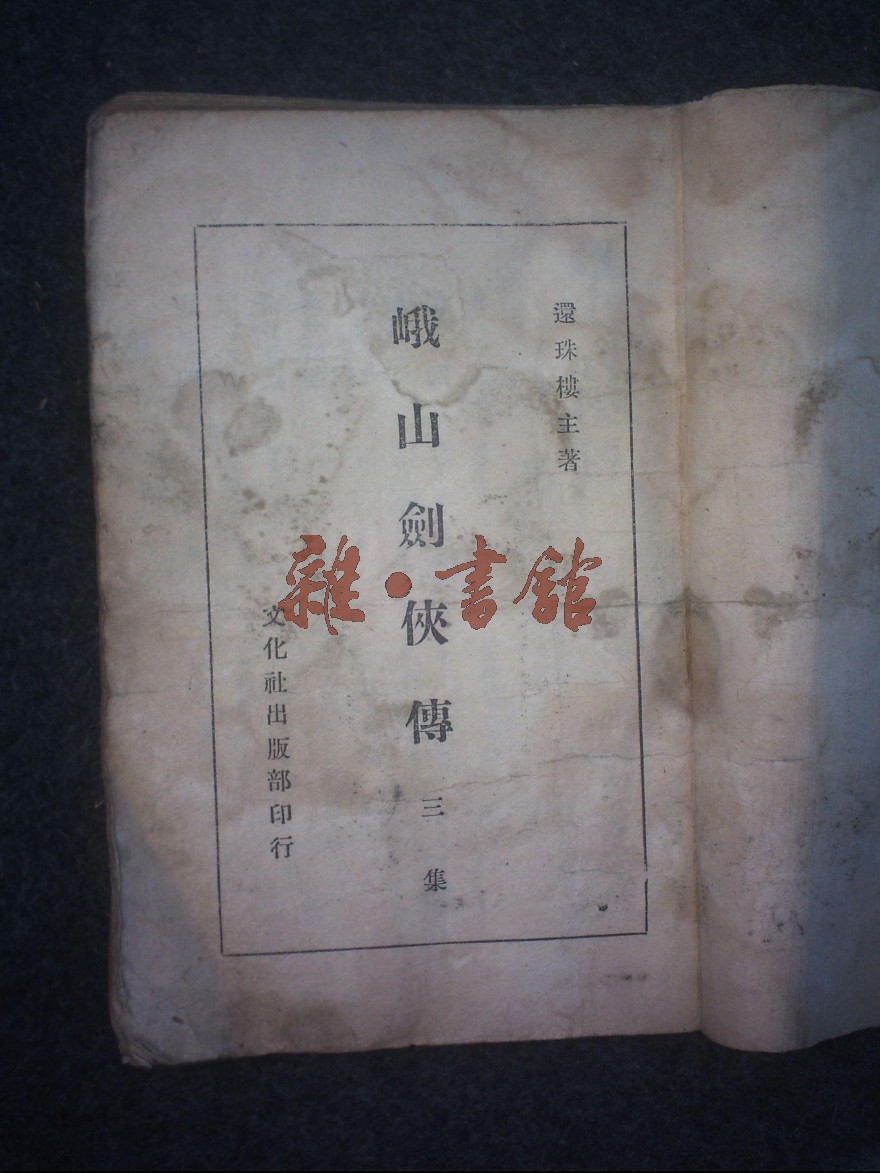 還珠樓主著
峨山劍俠傳 三集
文化社出版部印行
雜·書館